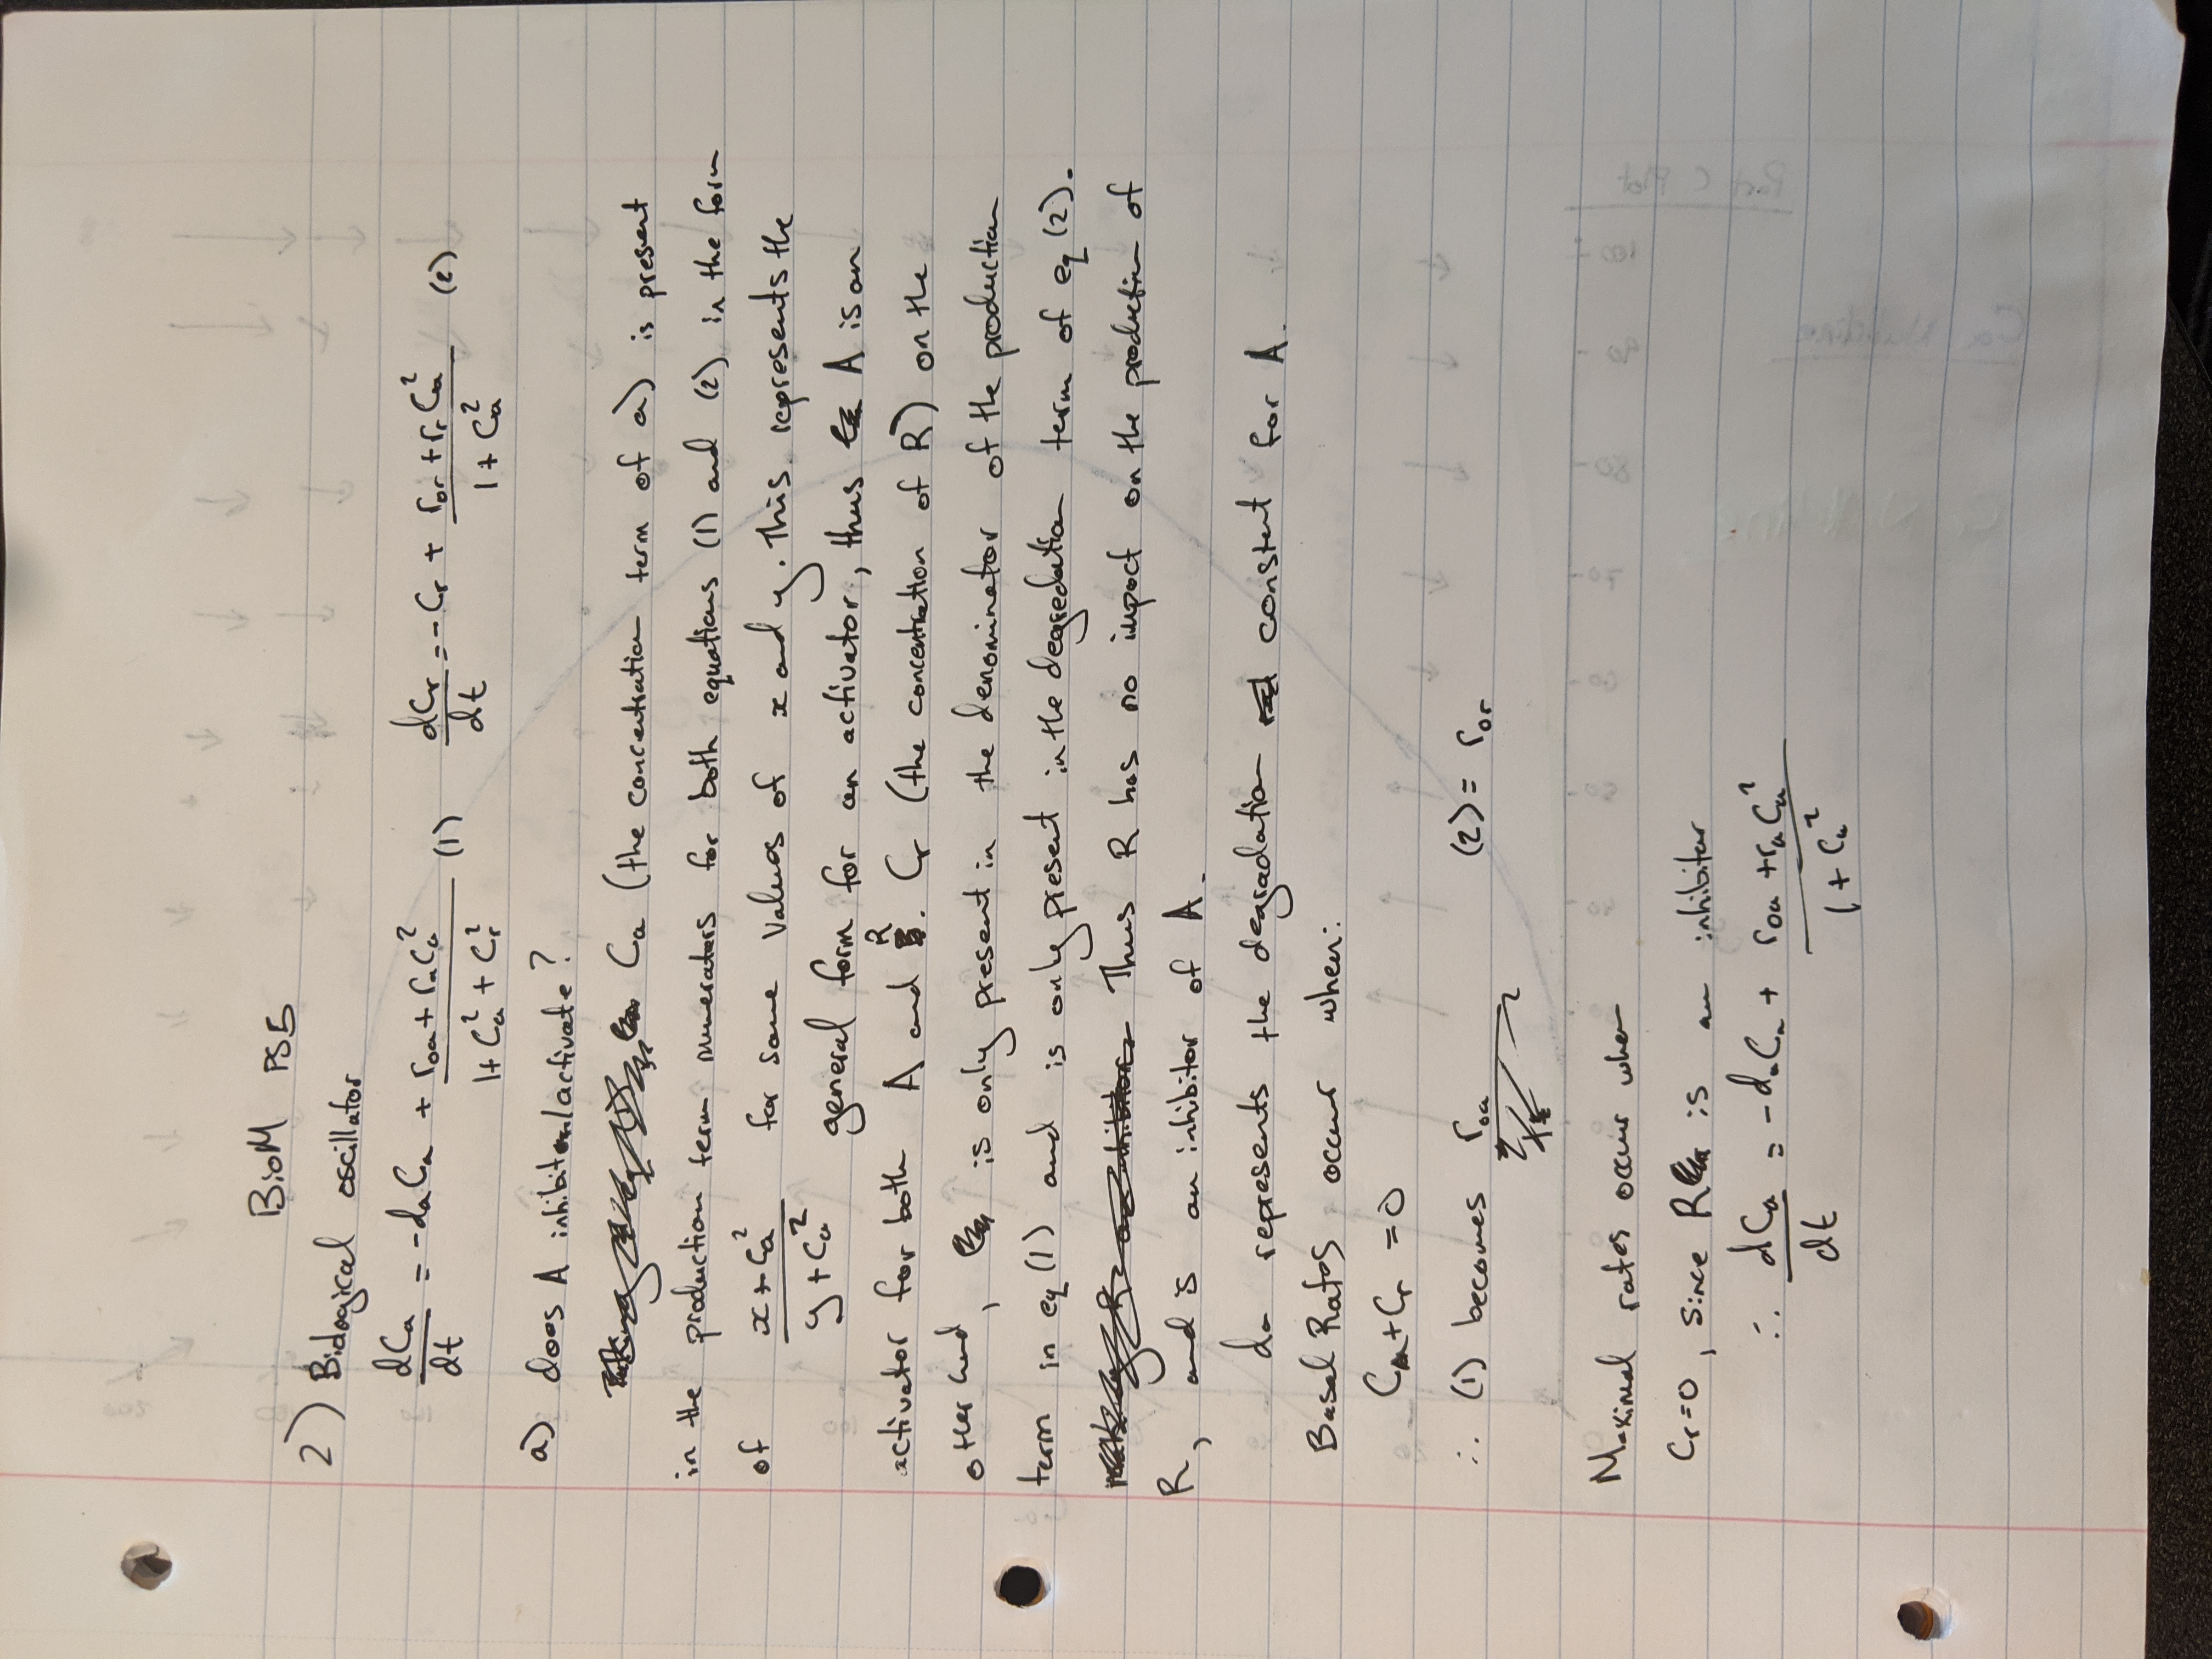 BioM PS5
2) Biological oscillator
dCa/dt = -daCa + (roa + raCa²)/(1 + Ca² + Cr²) (1) dCr/dt = -Cr + (ror + rrCa²)/(1 + Ca²) (2)
a) does A inhibit/activate?
Ca (the concentration term of a) is present
in the production term numerators for both equations (1) and (2) in the form
of (x + Ca²)/(y + Ca²) for some values of x and y. This represents the
general form for an activator, thus A is an
activator for both A and R. Cr (the concentration of R) on the
other hand, is only present in the denominator of the production
term in eq (1) and is only present in the degredation term of eq (2).
Thus R has no impact on the production of
R, and is an inhibitor of A.
da represents the degradation constent for A.
Basal Rates occur when:
Ca + Cr = 0
∴ (1) becomes roa (2) = ror
Maximal rates occur when
Cr = 0, since R is an inhibitor
∴ dCa/dt = -daCa + (roa + raCa²)/(1 + Ca²)